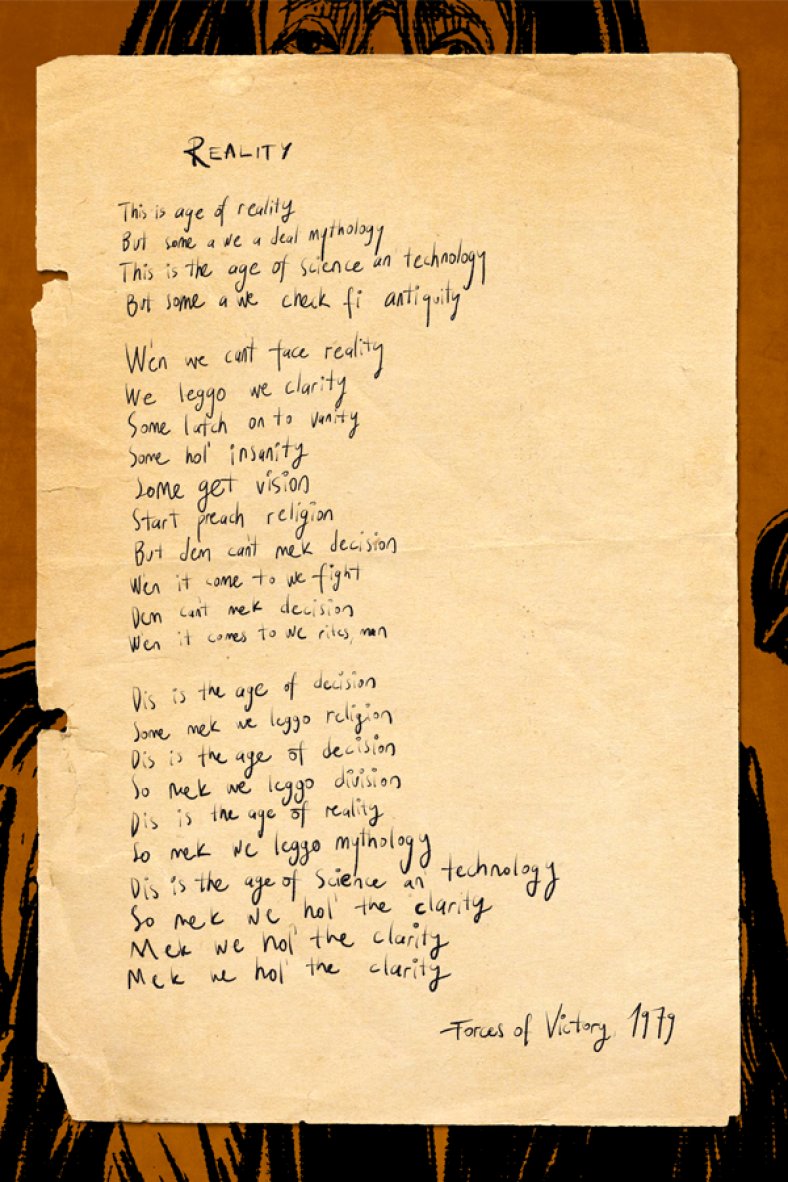 REALITY
This is age of reality
But some a we a deal mythology
This is the age of science an' technology
But some a we check fi antiquity
W'en we can't face reality
We leggo we clarity
Some latch on to vanity
Some hol' insanity
Some get vision
Start preach religion
But dem can't mek decision
W'en it come to we fight
Dem can't mek decision
W'en it comes to we rites, man
Dis is the age of decision
Some mek we leggo religion
Dis is the age of decision
So mek we leggo division
Dis is the age of reality
So mek we leggo mythology
Dis is the age of science an' technology
So mek we hol' the clarity
Mek we hol' the clarity
Mek we hol' the clarity
Forces of Victory, 1979